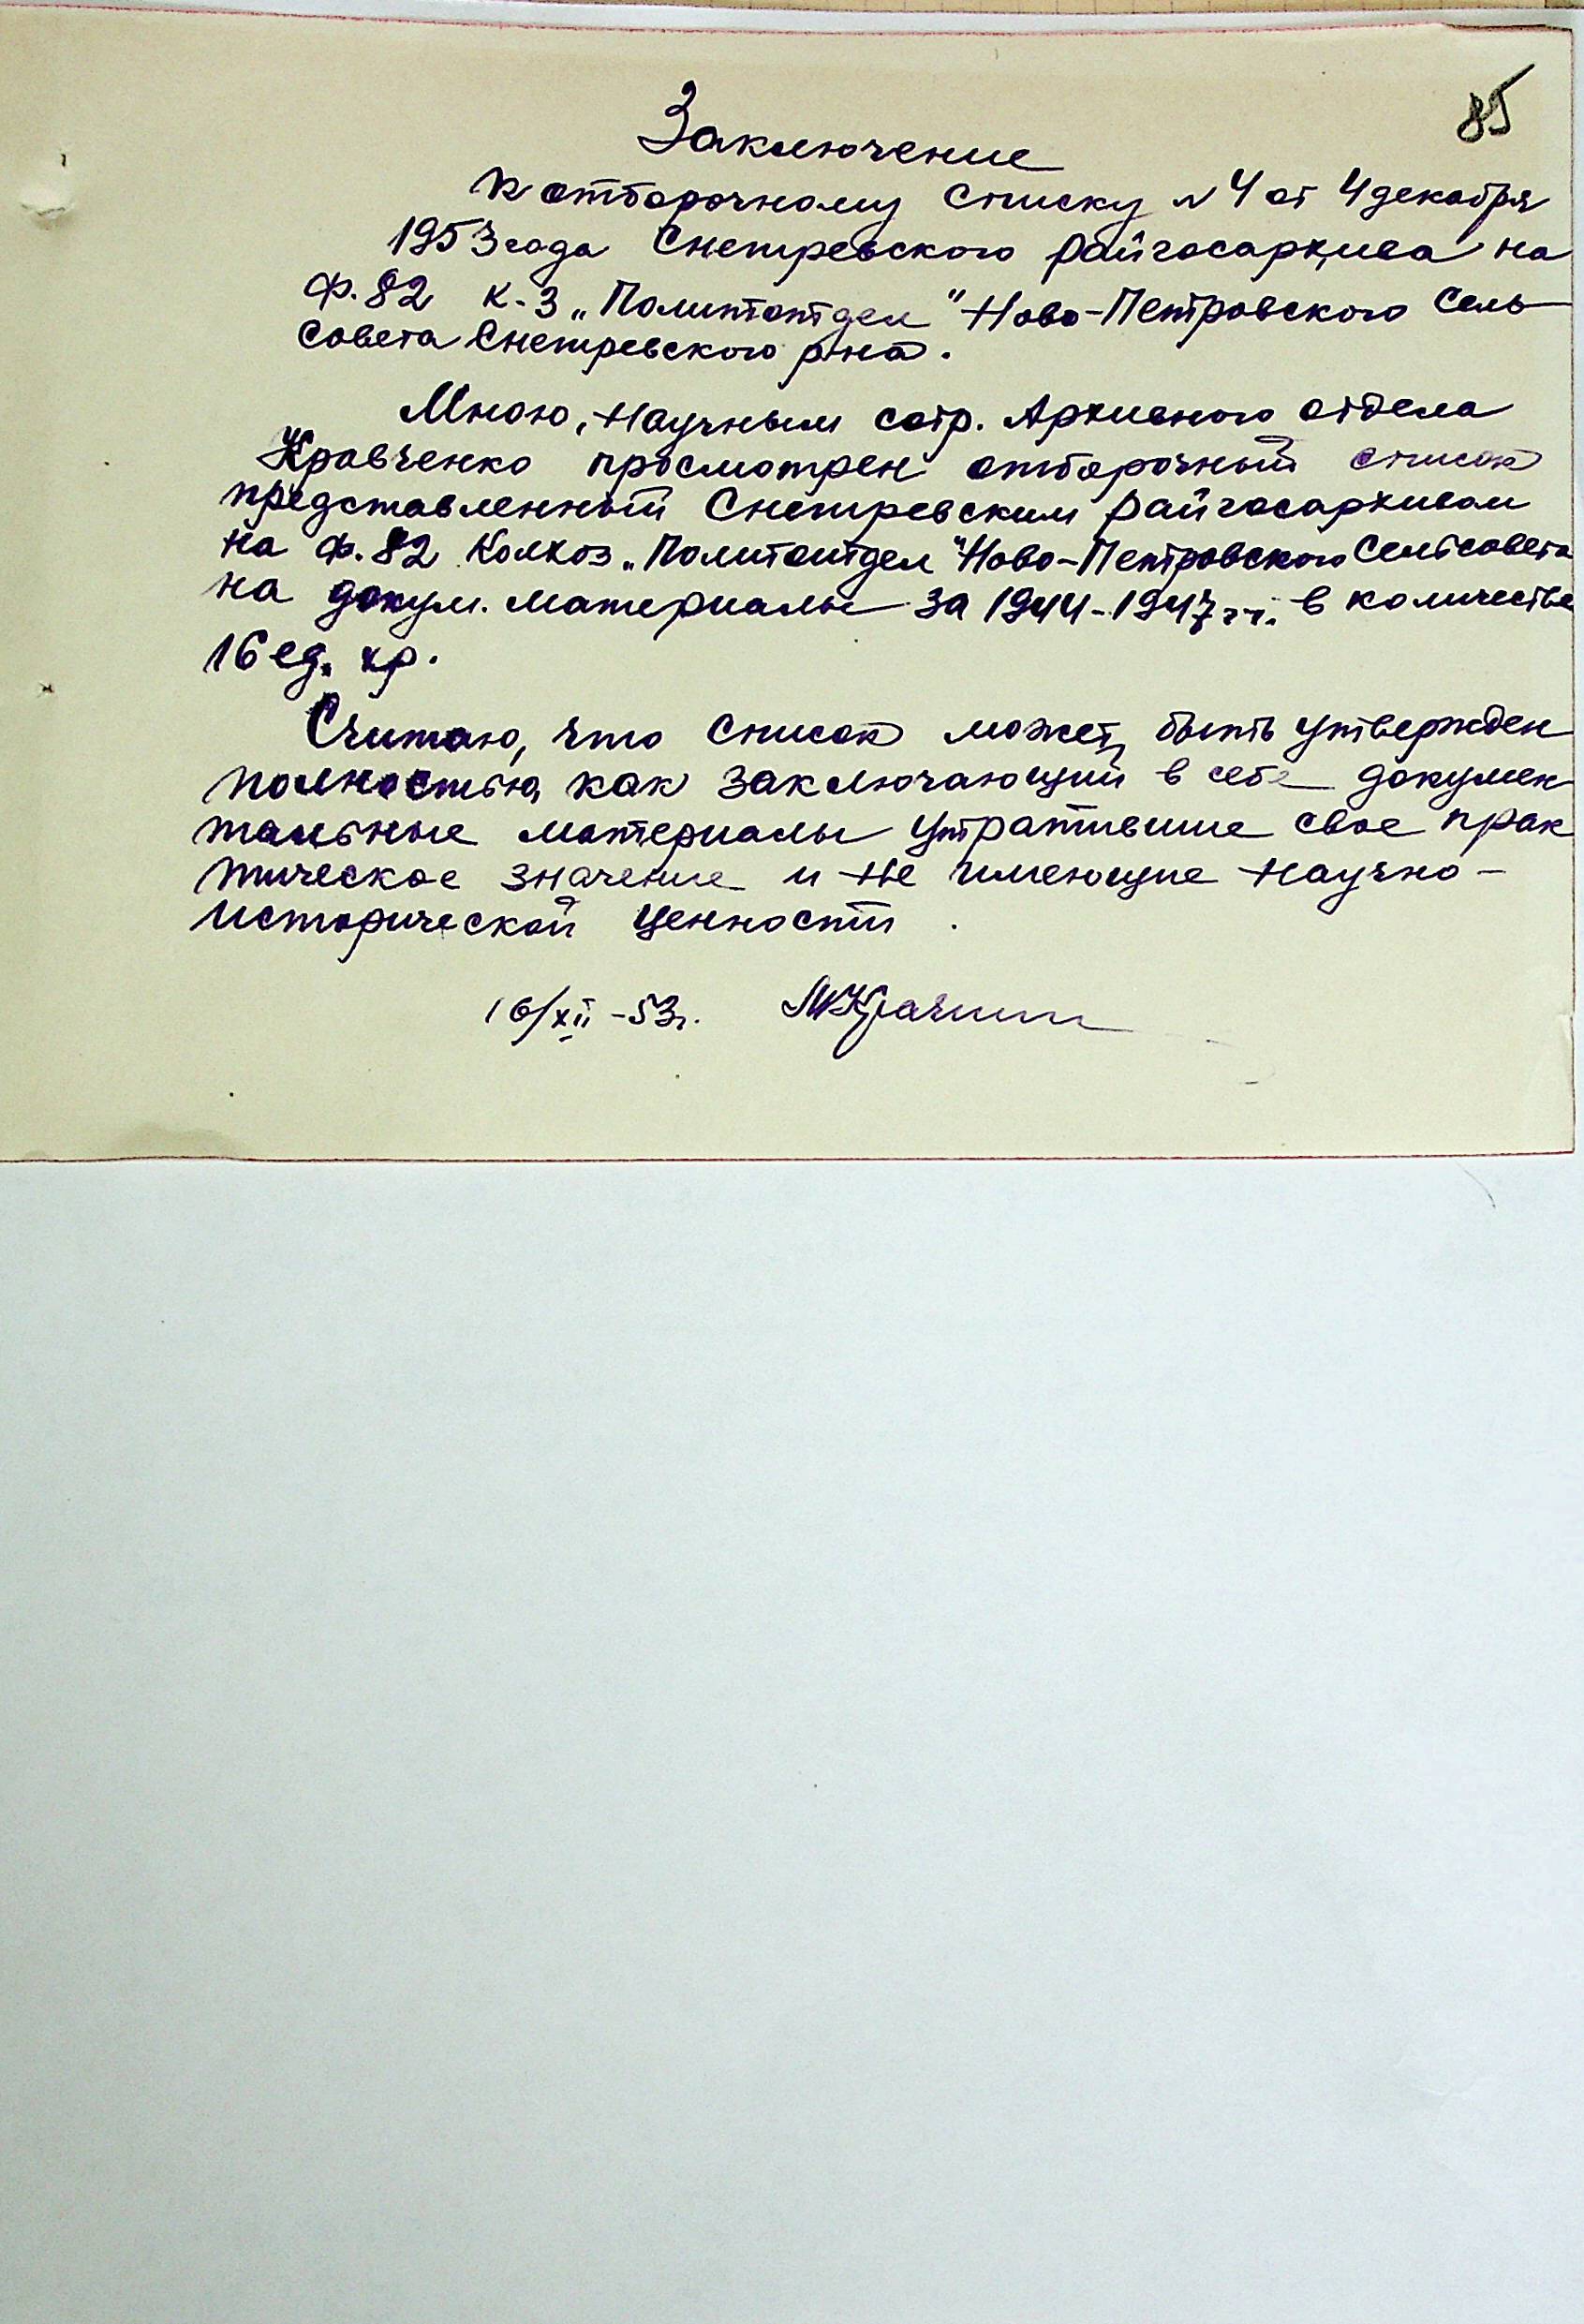 85
Заключение
к отборочному списку № 4 от 4 декабря
1953 года Снегиревского райгосархива на
ф. 82 к-з „Политотдел" Ново-Петровского Сель
совета Снегиревского р-на.
Мною, научным сотр. Архивного отдела
Кравченко просмотрен отборочный список
представленный Снегиревским райгосархивом
на ф. 82 Колхоз „Политотдел" Ново-Петровского Сельсовета
на докум. материалы за 1944-1947 гг. в количестве
16 ед. хр.
Считаю, что список может быть утвержден
полностью, как заключающий в себе докумен
тальные материалы утратившие свое прак
тическое значение и не имеющие научно-
исторической ценности.
16/XII-53г.